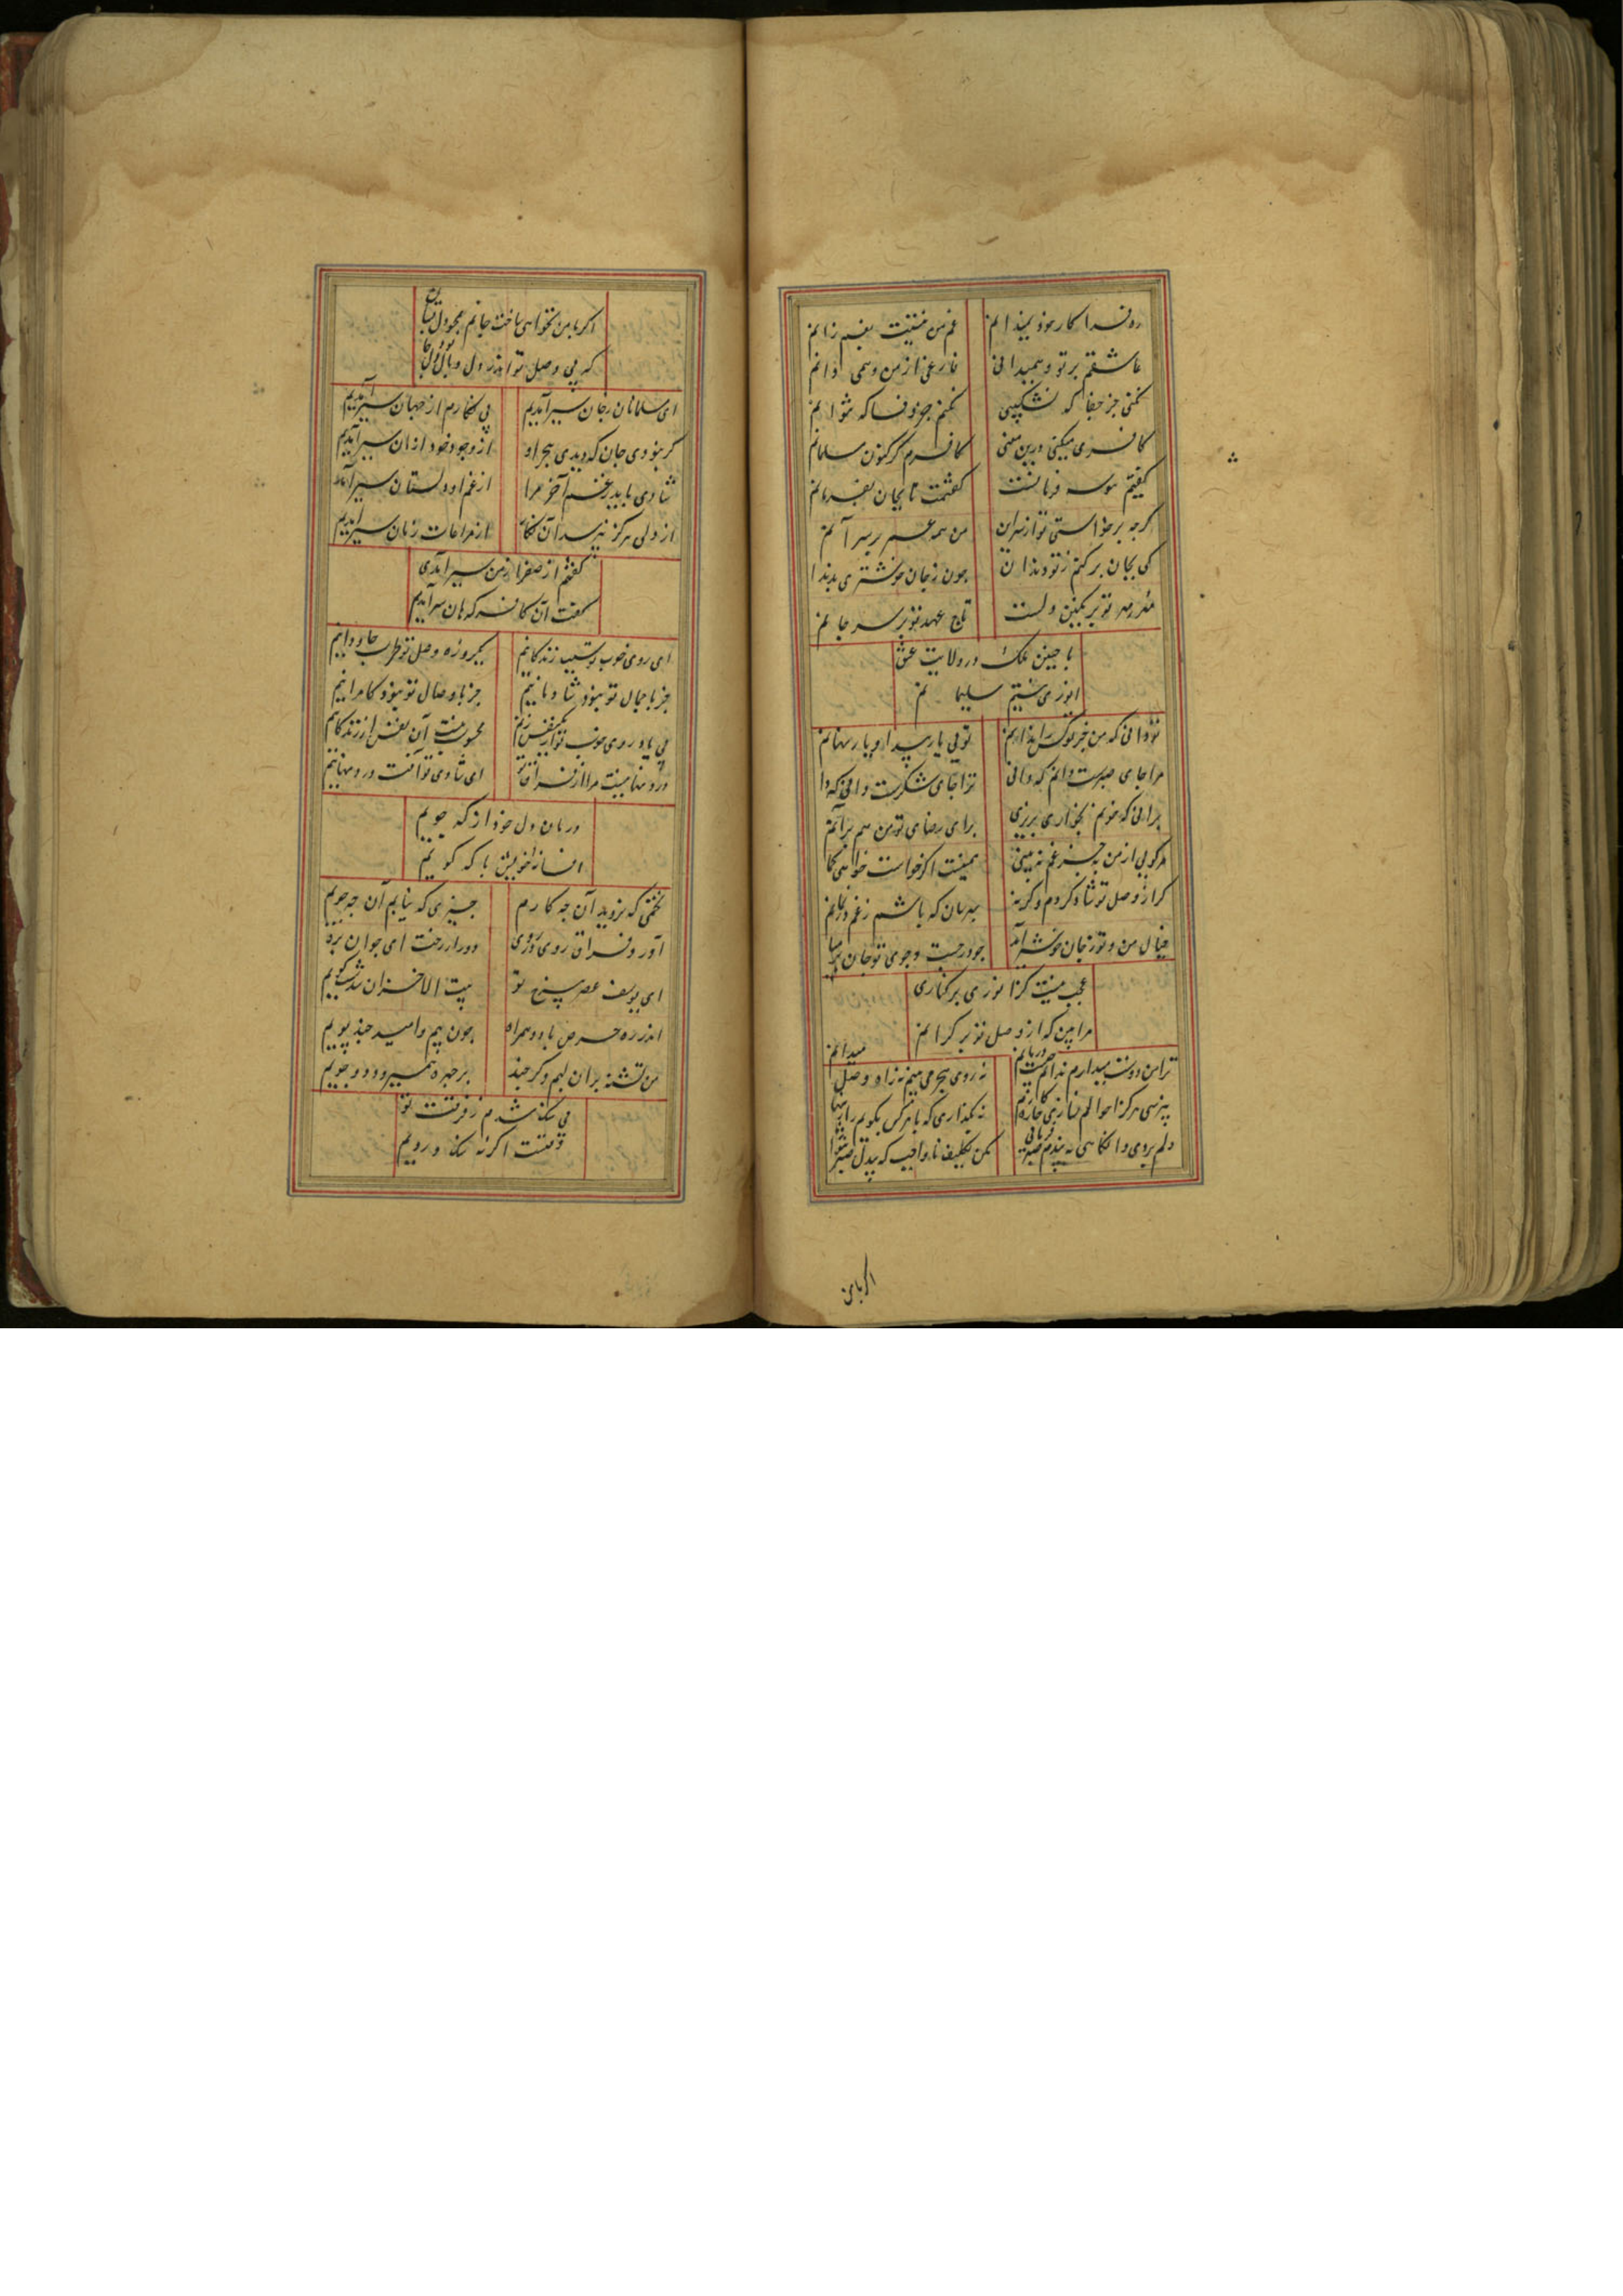 روز فردا کار خود نمیدانم غم من نیست بغم زانم
عاشقم بر تو و همیدانی فارغی از من و همی دانم
نکنی جز جفا که نشکیبی نکنم جز وفا که نتوانم
کافری میکنی درین معنی کافرم گر کنون مسلمانم
گفتیم بوسه فرمانست گفتمت تا بجان بفرمانم
گرچه برخواستی تو از سر آن من همه عمر بر سر آنم
کی بجان برکنم ز تو دندان چون ز جان خوشتری بدندا
مهر مهر تو بر نگین دلست تاج عهد تو بر سر جانم
با چنین ملک در ولایت عشق
انوری نیستم سلیمانم
تو دانی که من جز تو کس را ندانم تویی یار پیدا و یار نهانم
مرا جای صبرست دانم که دانی ترا جای شکرست دانی که دا
برانی که خونم بخواری بریزی برای رضای تو من هم برآنم
مرا گویی از من بجز غم نبینی همینست اگر خواست خواهی اما
گر از وصل تو شاد گردم وگرنه بهرسان که باشم ز غم در نمانم
خیال من و تو ز جان خوشتر آمد چو در جست و جوی تو جان بر میا
عجب نیست گر انوری بر کناری
مرا بین که از وصل تو بر کرانم
ترا من دوست میدارم ندانم چیست درمانم نه روی هجر می‌بینم نه راه وصل میدانم
نپرسی هرگز احوالم نسازی چاره کارم نه بگذاری که با هر کس بگویم راز پنهانم
دلم بردی و آنگاهی به پندم صبر فرمایی مکن تکلیف نا واجب که بیدل صبر نتوا
اگر با من
اگر با من نخواهی ساخت جانم همچو دل بستان
که بی وصل تو اندر دل وبال دل بود جا
ای مسلمانان ز جان سیر آمدیم بی نگارم از جهان سیر آمدیم
گر نبودی جان که دیدی هجر او از وجود خود از آن سیر آمدیم
شادیی باید ز غم آخر مرا از غم او دلستان سیر آمدیم
از دلی هرگز نپرسد آن نگار از مراعات زبان سیر آمدیم
گفتم از صفرا ز من سیر آمدی
گفت آن کافر که هان سیر آمدیم
ای روی خوب تو سبب زندگانیم یکروزه وصل تو طرب جاودانیم
جز با جمال تو نبود شادمانیم جز با وصال تو نبود کامرانیم
بی یاد روی خوب تو ار یک نفس زنم محسوب نیست آن نفس از زندگانیم
دردی نهانیست مرا از فراق تو ای شادی تو آفت درد نهانیم
درمان دل خود از که جویم
افسانه خویش با که گویم
تخمی که نروید آن چه کارم چیزی که نیابم آن چه جویم
آورد فراق روی زردی دور از رخت ای جوان برو
ای یوسف عصر بی رخ تو بیت الاحزان شدست کویم
اندر ره حرص با دو همراه چون بیم و امید چند پویم
من تشنه بر آن لبم وگر چند بر خیره همی‌رود دو جویم
بی سنگ شدم ز فرقت تو
وقتست اگر نه سنگ و رویم